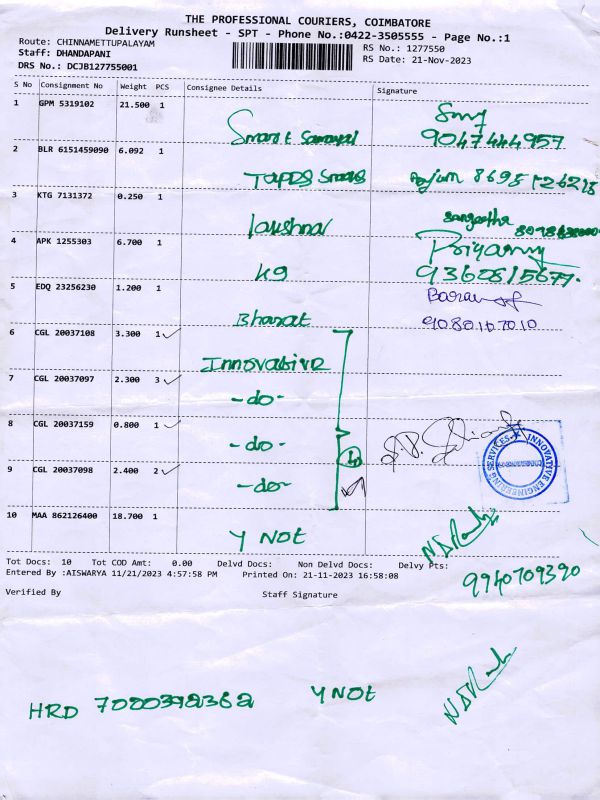 THE PROFESSIONAL COURIERS, COIMBATORE
Delivery Runsheet - SPT - Phone No.:0422-3505555 - Page No.:1
Route: CHINNAMETTUPALAYAM
RS No.: 1277550
Staff: DHANDAPANI
RS Date: 21-Nov-2023
DRS No.: DCJB127755001
S No Consignment No Weight PCS Consignee Details Signature
1 GPM 5319102 21.500 1
9047444957
2 BLR 6151459090 6.092 1
3 KTG 7131372 0.250 1
Sangeetha
4 APK 1255303 6.700 1
Priyanny
K9 9360815677.
5 EDQ 23256230 1.200 1
Bharat 9080107010
6 CGL 20037108 3.300 1 ✓
Innovative
7 CGL 20037097 2.300 3 ✓
-do-
8 CGL 20037159 0.800 1 ✓
-do-
INNOVATIVE ENGINEERING SERVICES
9 CGL 20037098 2.400 2 ✓
-do-
10 MAA 862126400 18.700 1
Y NOT
Tot Docs: 10 Tot COD Amt: 0.00 Delvd Docs: Non Delvd Docs: Delvy Pts:
Entered By :AISWARYA 11/21/2023 4:57:58 PM Printed On: 21-11-2023 16:58:08
9940709390
Verified By Staff Signature
HRD 7000392362 Y NOt